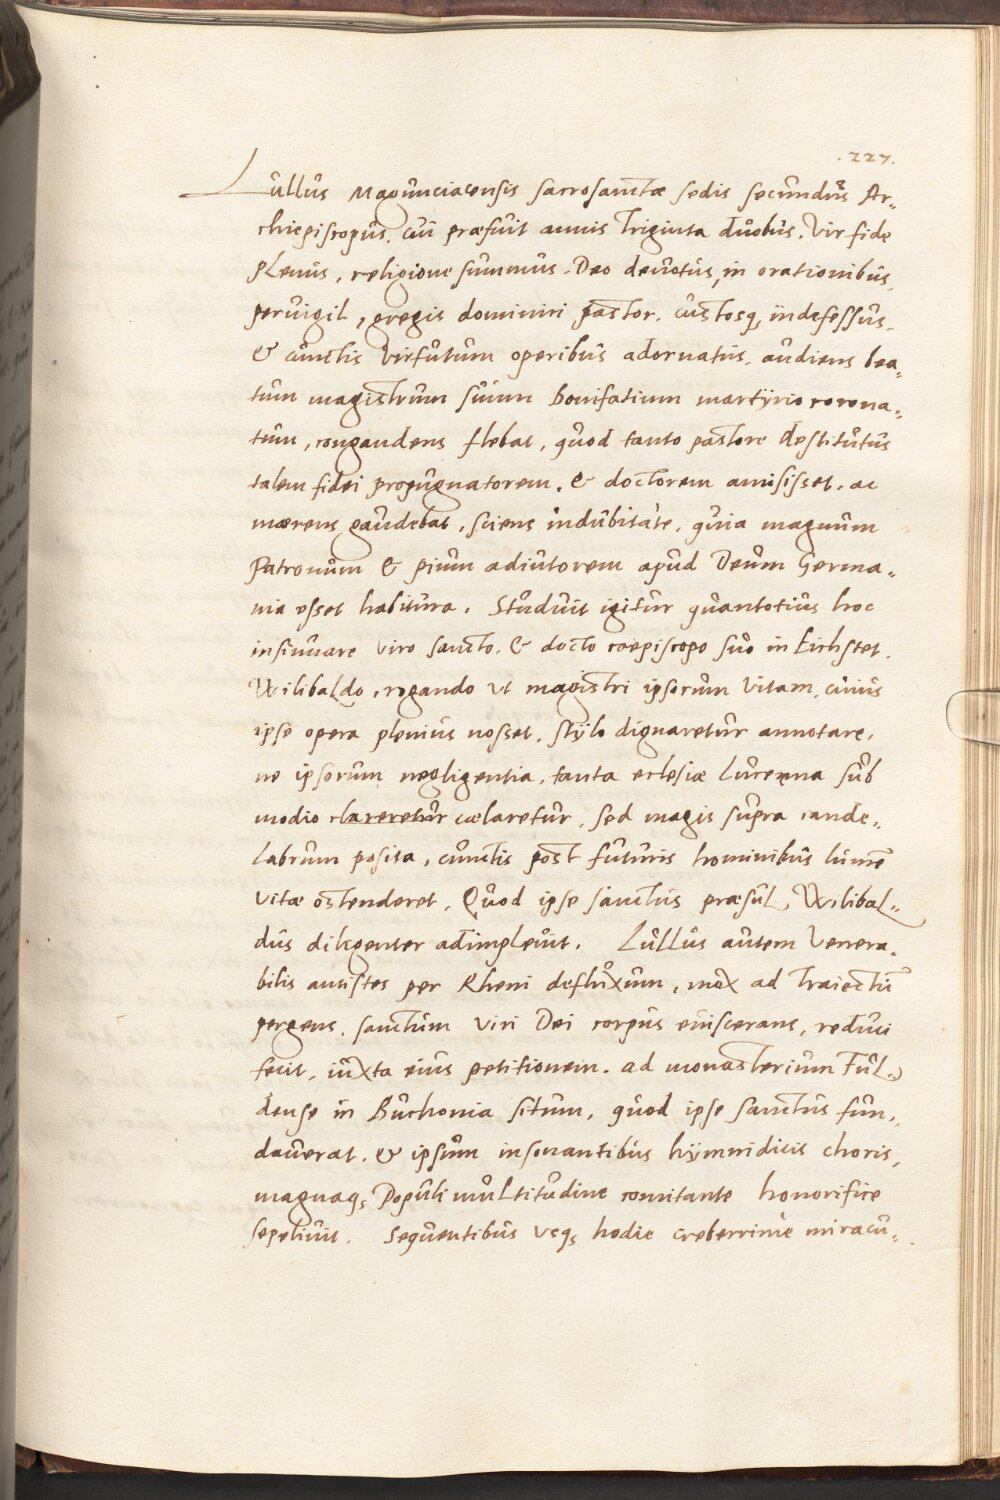 .227.
Lullus Magunciacensis sacrosanctæ sedis secundus Ar„
chiepiscopus, cui præfuit annis Triginta duobus. Vir fide
plenus, religione summus. Deo devotus, in orationibus
pervigil, gregis dominici pastor, custosq; indefessus.
& cunctis Virtutum operibus adornatus. audiens bea„
tum magistrum suum Bonifatium martyrio corona„
tum, congaudens flebat, quod tanto pastore destitutus
talem fidei propugnatorem. & doctorem amisisset. ac
mærens gaudebat, sciens indubitate, quia magnum
Patronum & pium adiutorem apud Deum Germa„
nia esset habitura. Studuit igitur quantotius hoc
insinuare viro sancto. & docto coepiscopo suo in Eichstet.
Wilibaldo, rogando ut magistri ipsorum Vitam, cuius
ipse opera plenius nosset, stylo dignaretur annotare,
ne ipsorum negligentia, tanta eclesiæ lucerna sub
modio clareretur cælaretur, sed magis supra cande„
labrum posita, cunctis post futuris hominibus lumē
vitæ ostenderet. Quod ipse sanctus præsul, Wilibal„
dus diligenter adimplevit. Lullus autem Venera„
bilis antistes per Rheni defluxum, mox ad Traiectū
pergens, sanctum viri Dei corpus eviscerans, reduci
fecit, iuxta eius petitionem. ad monasterium Ful„
dense in Buchonia situm, quod ipse sanctus fun„
daverat. & ipsum insonantibus hymnidicis choris,
magnaq; Populi multitudine comitante honorifice
sepelivit. Sequentibus usq; hodie creberrime miracu„